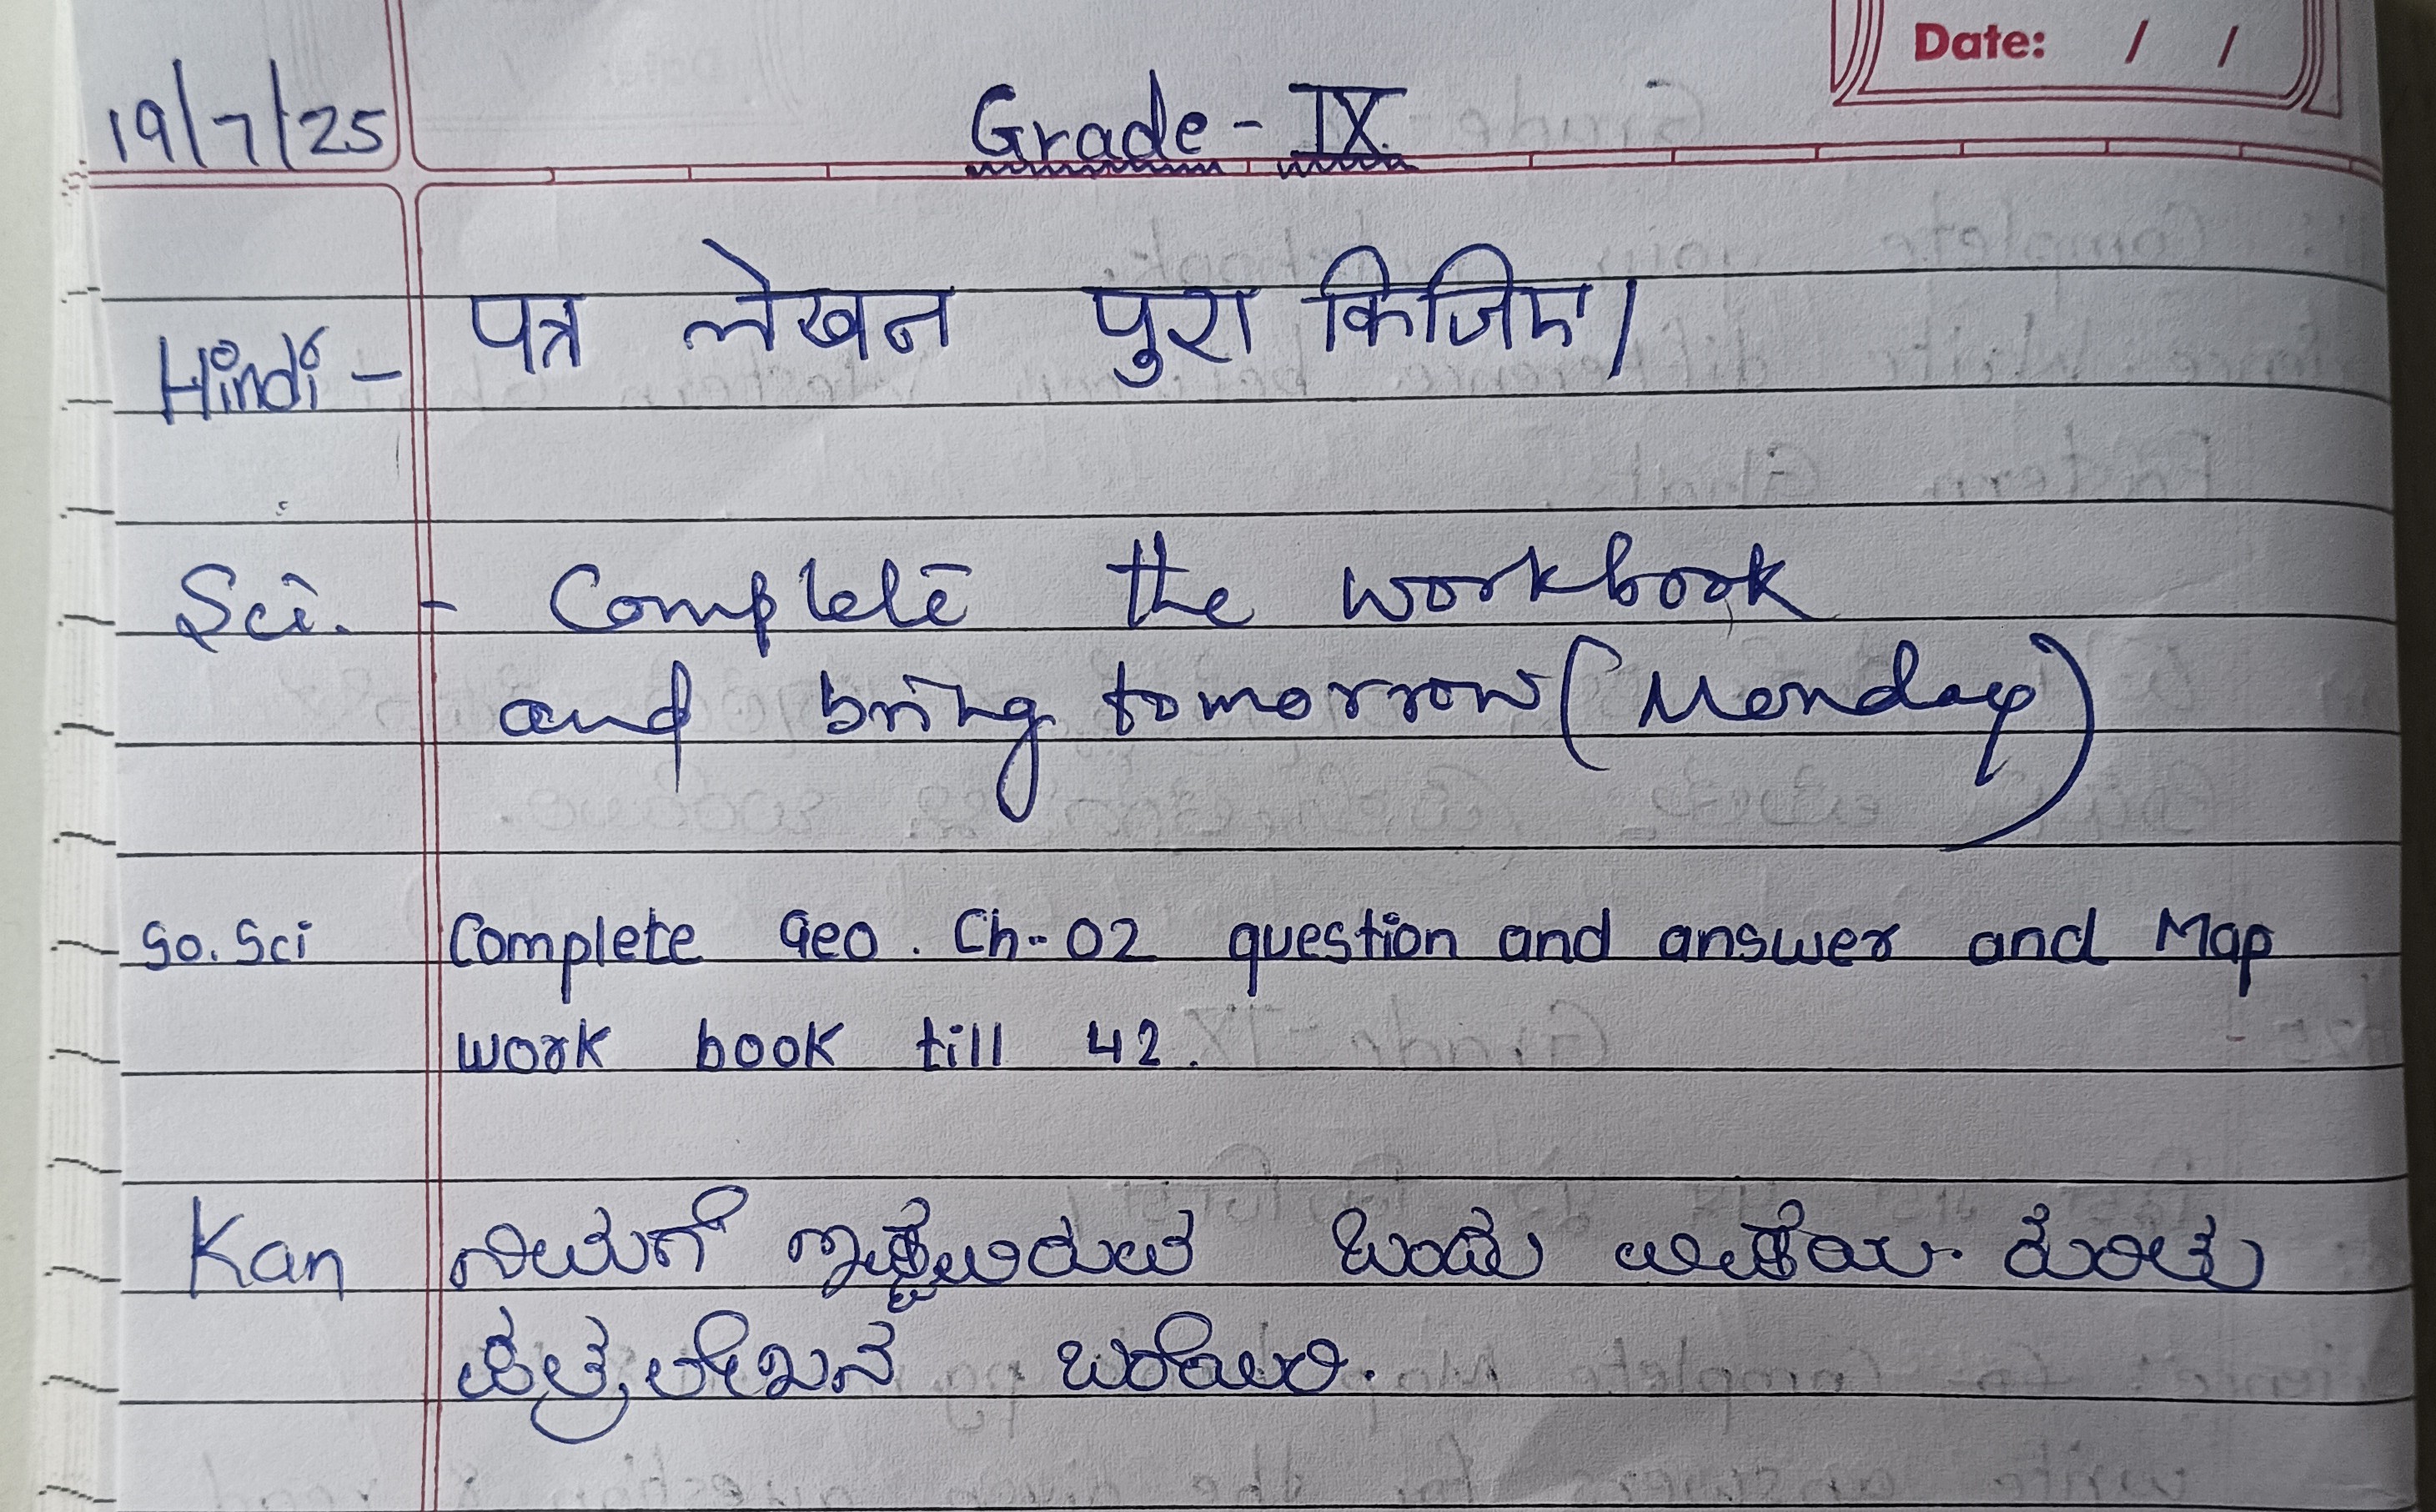 Date: / /
19/7/25 Grade - IX
Hindi - पत्र लेखन पुरा किजिए।
Sci. - Complete the workbook
and bring tomorrow (Monday)
So.Sci Complete Geo. Ch-02 question and answer and Map
work book till 42.
Kan ನಿಮಗೆ ಇಷ್ಟವಿರುವ ಒಂದು ವಿಷಯ ಕುರಿತು
ಪತ್ರ ಲೇಖನ ಬರೆಯಿರಿ.